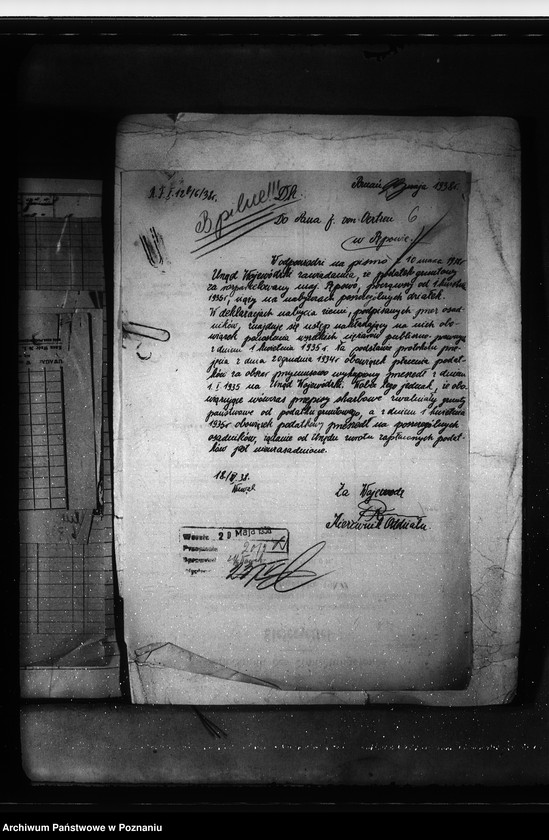 Poznań maja 1938 r.
B. pilne!!!
Do Pana f. von Oertzen
w Pępowie
W odpowiedzi na pismo z 10 marca
Urząd Wojewódzki zawiadamia, że podatek gruntowy
za rozparcelowany maj. Pępowo, począwszy od 1 kwietnia
1935 r, ciąży na nabywcach poszczególnych działek.
W deklaracjach nabycia ziemi, podpisanych przez osad-
ników, znajduje się ustęp nakładający na nich obo-
wiązek ponoszenia wszelkich ciężarów publiczno-prawnych
z dniem 1 kwietnia 1935 r. Na podstawie protokółu prze-
jęcia z dnia 2 grudnia 1934 r obowiązek płacenia podat-
ków za obszar przymusowo wykupiony przeszedł z dniem
1. I. 1935 na Urząd Wojewódzki. Wobec tego jednak, że obo-
wiązujące wówczas przepisy skarbowe zwalniały grunty
państwowe od podatku gruntowego, a z dniem 1 kwietnia
1935 r obowiązek podatkowy przeszedł na poszczególnych
osadników, żądanie od Urzędu zwrotu zapłaconych podat-
ków jest nieuzasadnione.
18/V 38.
Za Wojewodę
Kierownik Oddziału
2 0 Maja 1938
Archiwum Państwowe w Poznaniu